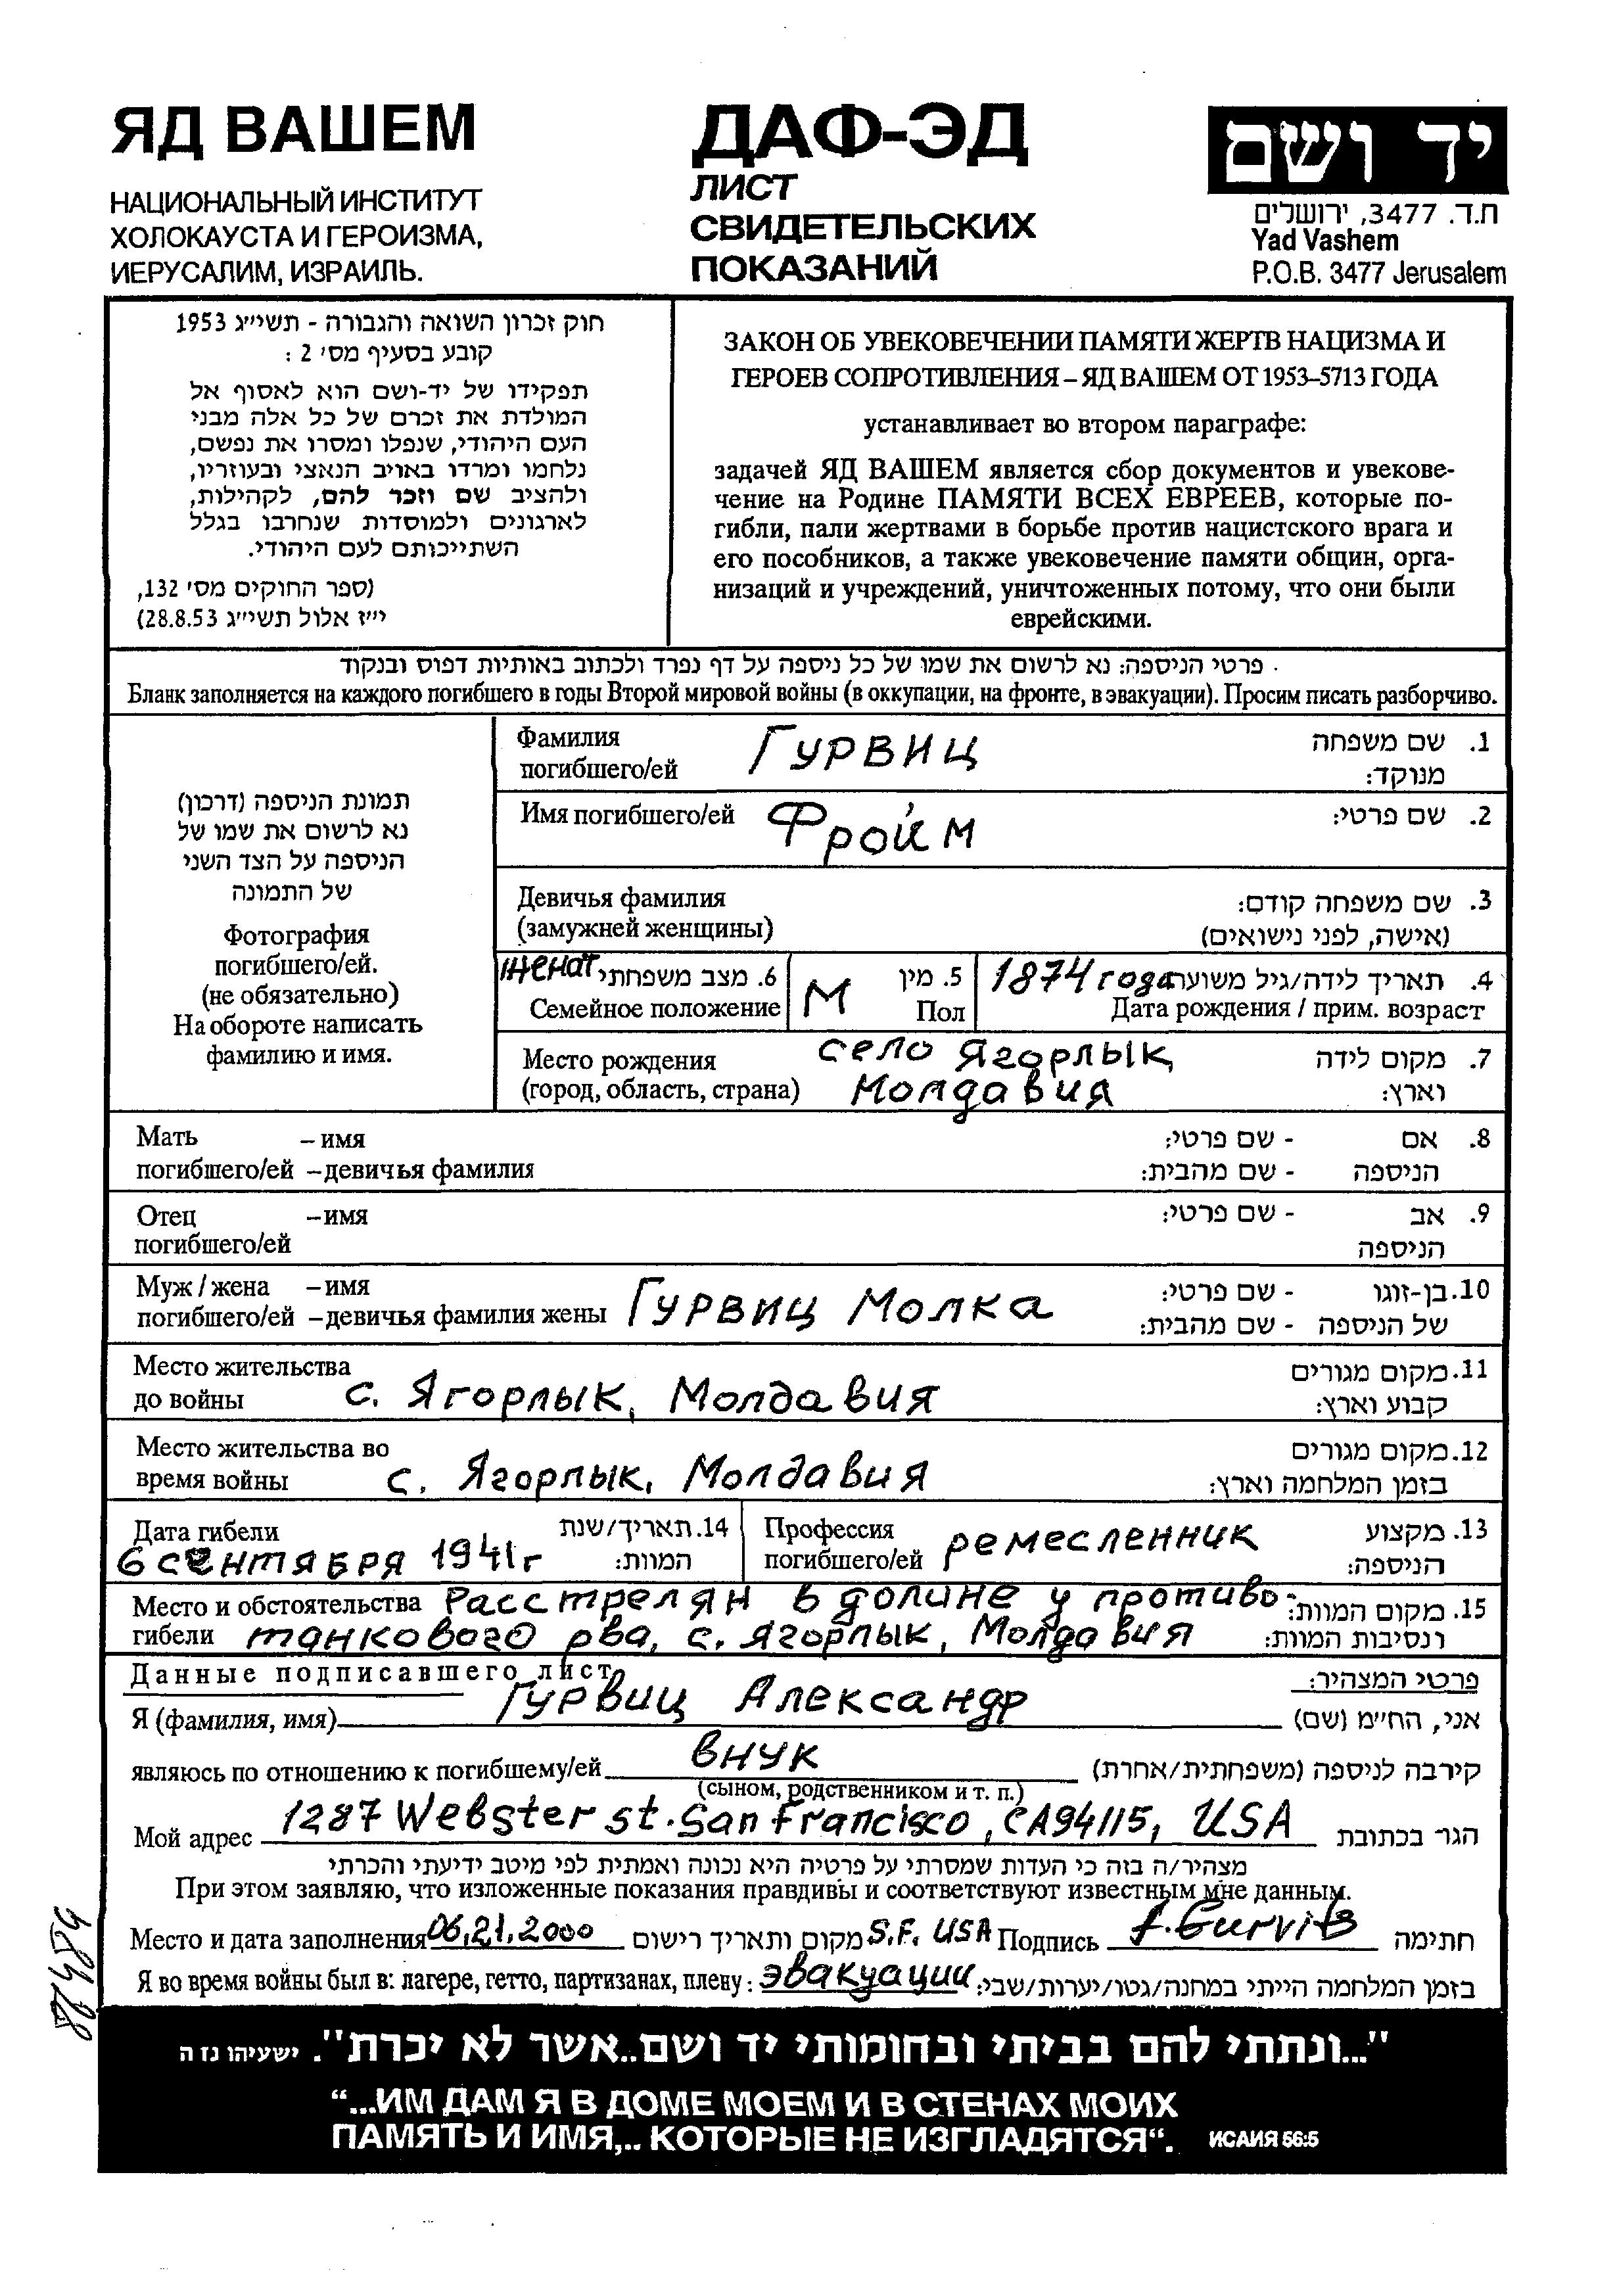 ЯД ВАШЕМ
НАЦИОНАЛЬНЫЙ ИНСТИТУТ
ХОЛОКАУСТА И ГЕРОИЗМА,
ИЕРУСАЛИМ, ИЗРАИЛЬ.
ДАФ-ЭД
ЛИСТ
СВИДЕТЕЛЬСКИХ
ПОКАЗАНИЙ
יד ושם
ת.ד. 3477, ירושלים
Yad Vashem
P.O.B. 3477 Jerusalem
חוק זכרון השואה והגבורה - תשי״ג 1953
קובע בסעיף מס׳ 2 :
תפקידו של יד-ושם הוא לאסוף אל
המולדת את זכרם של כל אלה מבני
העם היהודי, שנפלו ומסרו את נפשם,
נלחמו ומרדו באויב הנאצי ובעוזריו,
ולהציב שם וזכר להם, לקהילות,
לארגונים ולמוסדות שנחרבו בגלל
השתייכותם לעם היהודי.
(ספר החוקים מס׳ 132,
י״ז אלול תשי״ג 28.8.53)
ЗАКОН ОБ УВЕКОВЕЧЕНИИ ПАМЯТИ ЖЕРТВ НАЦИЗМА И
ГЕРОЕВ СОПРОТИВЛЕНИЯ – ЯД ВАШЕМ ОТ 1953–5713 ГОДА
устанавливает во втором параграфе:
задачей ЯД ВАШЕМ является сбор документов и увекове-
чение на Родине ПАМЯТИ ВСЕХ ЕВРЕЕВ, которые по-
гибли, пали жертвами в борьбе против нацистского врага и
его пособников, а также увековечение памяти общин, орга-
низаций и учреждений, уничтоженных потому, что они были
еврейскими.
פרטי הניספה: נא לרשום את שמו של כל ניספה על דף נפרד ולכתוב באותיות דפוס ובנקוד
Бланк заполняется на каждого погибшего в годы Второй мировой войны (в оккупации, на фронте, в эвакуации). Просим писать разборчиво.
תמונת הניספה (דרכון)
נא לרשום את שמו של
הניספה על הצד השני
של התמונה
Фотография
погибшего/ей.
(не обязательно)
На обороте написать
фамилию и имя.
Фамилия ГУРВИЦ 1. שם משפחה
погибшего/ей מנוקד:
Имя погибшего/ей Фройм 2. שם פרטי:
Девичья фамилия 3. שם משפחה קודם:
(замужней женщины) (אישה, לפני נישואים)
женат 6. מצב משפחתי М 5. מין 1874 года 4. תאריך לידה/גיל משוער
Семейное положение Пол Дата рождения / прим. возраст
Место рождения село Ягорлык, 7. מקום לידה
(город, область, страна) Молдавия וארץ:
Мать – имя - שם פרטי: 8. אם
погибшего/ей – девичья фамилия - שם מהבית: הניספה
Отец – имя - שם פרטי: 9. אב
погибшего/ей הניספה
Муж / жена – имя - שם פרטי: 10. בן-זוגו
погибшего/ей – девичья фамилия жены Гурвиц Молка - שם מהבית: של הניספה
Место жительства 11. מקום מגורים
до войны с. Ягорлык, Молдавия קבוע וארץ:
Место жительства во 12. מקום מגורים
время войны с. Ягорлык, Молдавия בזמן המלחמה וארץ:
Дата гибели 14. תאריך/שנת Профессия ремесленник 13. מקצוע
6 сентября 1941 г המוות: погибшего/ей הניספה:
Место и обстоятельства Расстрелян в долине у противо- 15. מקום המוות:
гибели танкового рва, с. Ягорлык, Молдавия ונסיבות המוות:
Данные подписавшего лист פרטי המצהיר:
Я (фамилия, имя) Гурвиц Александр אני, הח״מ (שם)
являюсь по отношению к погибшему/ей внук קירבה לניספה (משפחתית/אחרת)
(сыном, родственником и т. п.)
Мой адрес 1287 Webster st. San Francisco, CA94115, USA הגר בכתובת
מצהיר/ה בזה כי העדות שמסרתי על פרטיה היא נכונה ואמתית לפי מיטב ידיעתי והכרתי
При этом заявляю, что изложенные показания правдивы и соответствуют известным мне данным.
Место и дата заполнения 06,21,2000 מקום ותאריך רישום S.F. USA Подпись A. Gurvits חתימה
Я во время войны был в: лагере, гетто, партизанах, плену: эвакуации בזמן המלחמה הייתי במחנה/גטו/יערות/שבי:
"...ונתתי להם בביתי ובחומותי יד ושם..אשר לא יכרת". ישעיהו נז ה
“...ИМ ДАМ Я В ДОМЕ МОЕМ И В СТЕНАХ МОИХ
ПАМЯТЬ И ИМЯ,.. КОТОРЫЕ НЕ ИЗГЛАДЯТСЯ“. ИСАИЯ 56:5